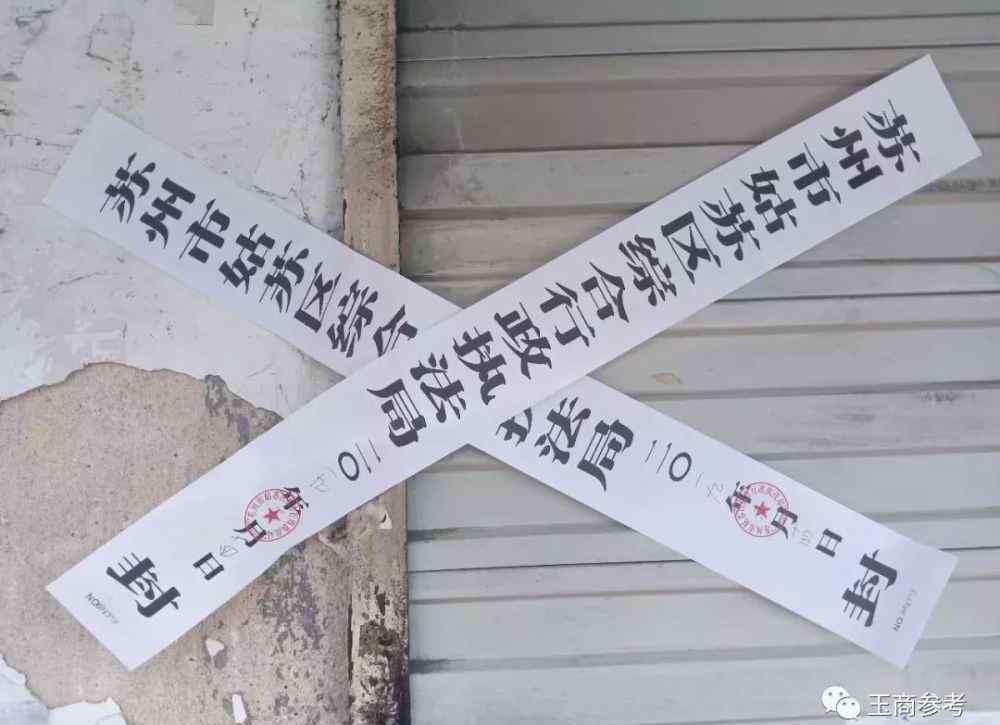 苏州市姑苏区综合行政执法局
二〇一九年 月 日
封
苏州市姑苏区综合 法局
二〇一九年 月 日
封
玉商参考